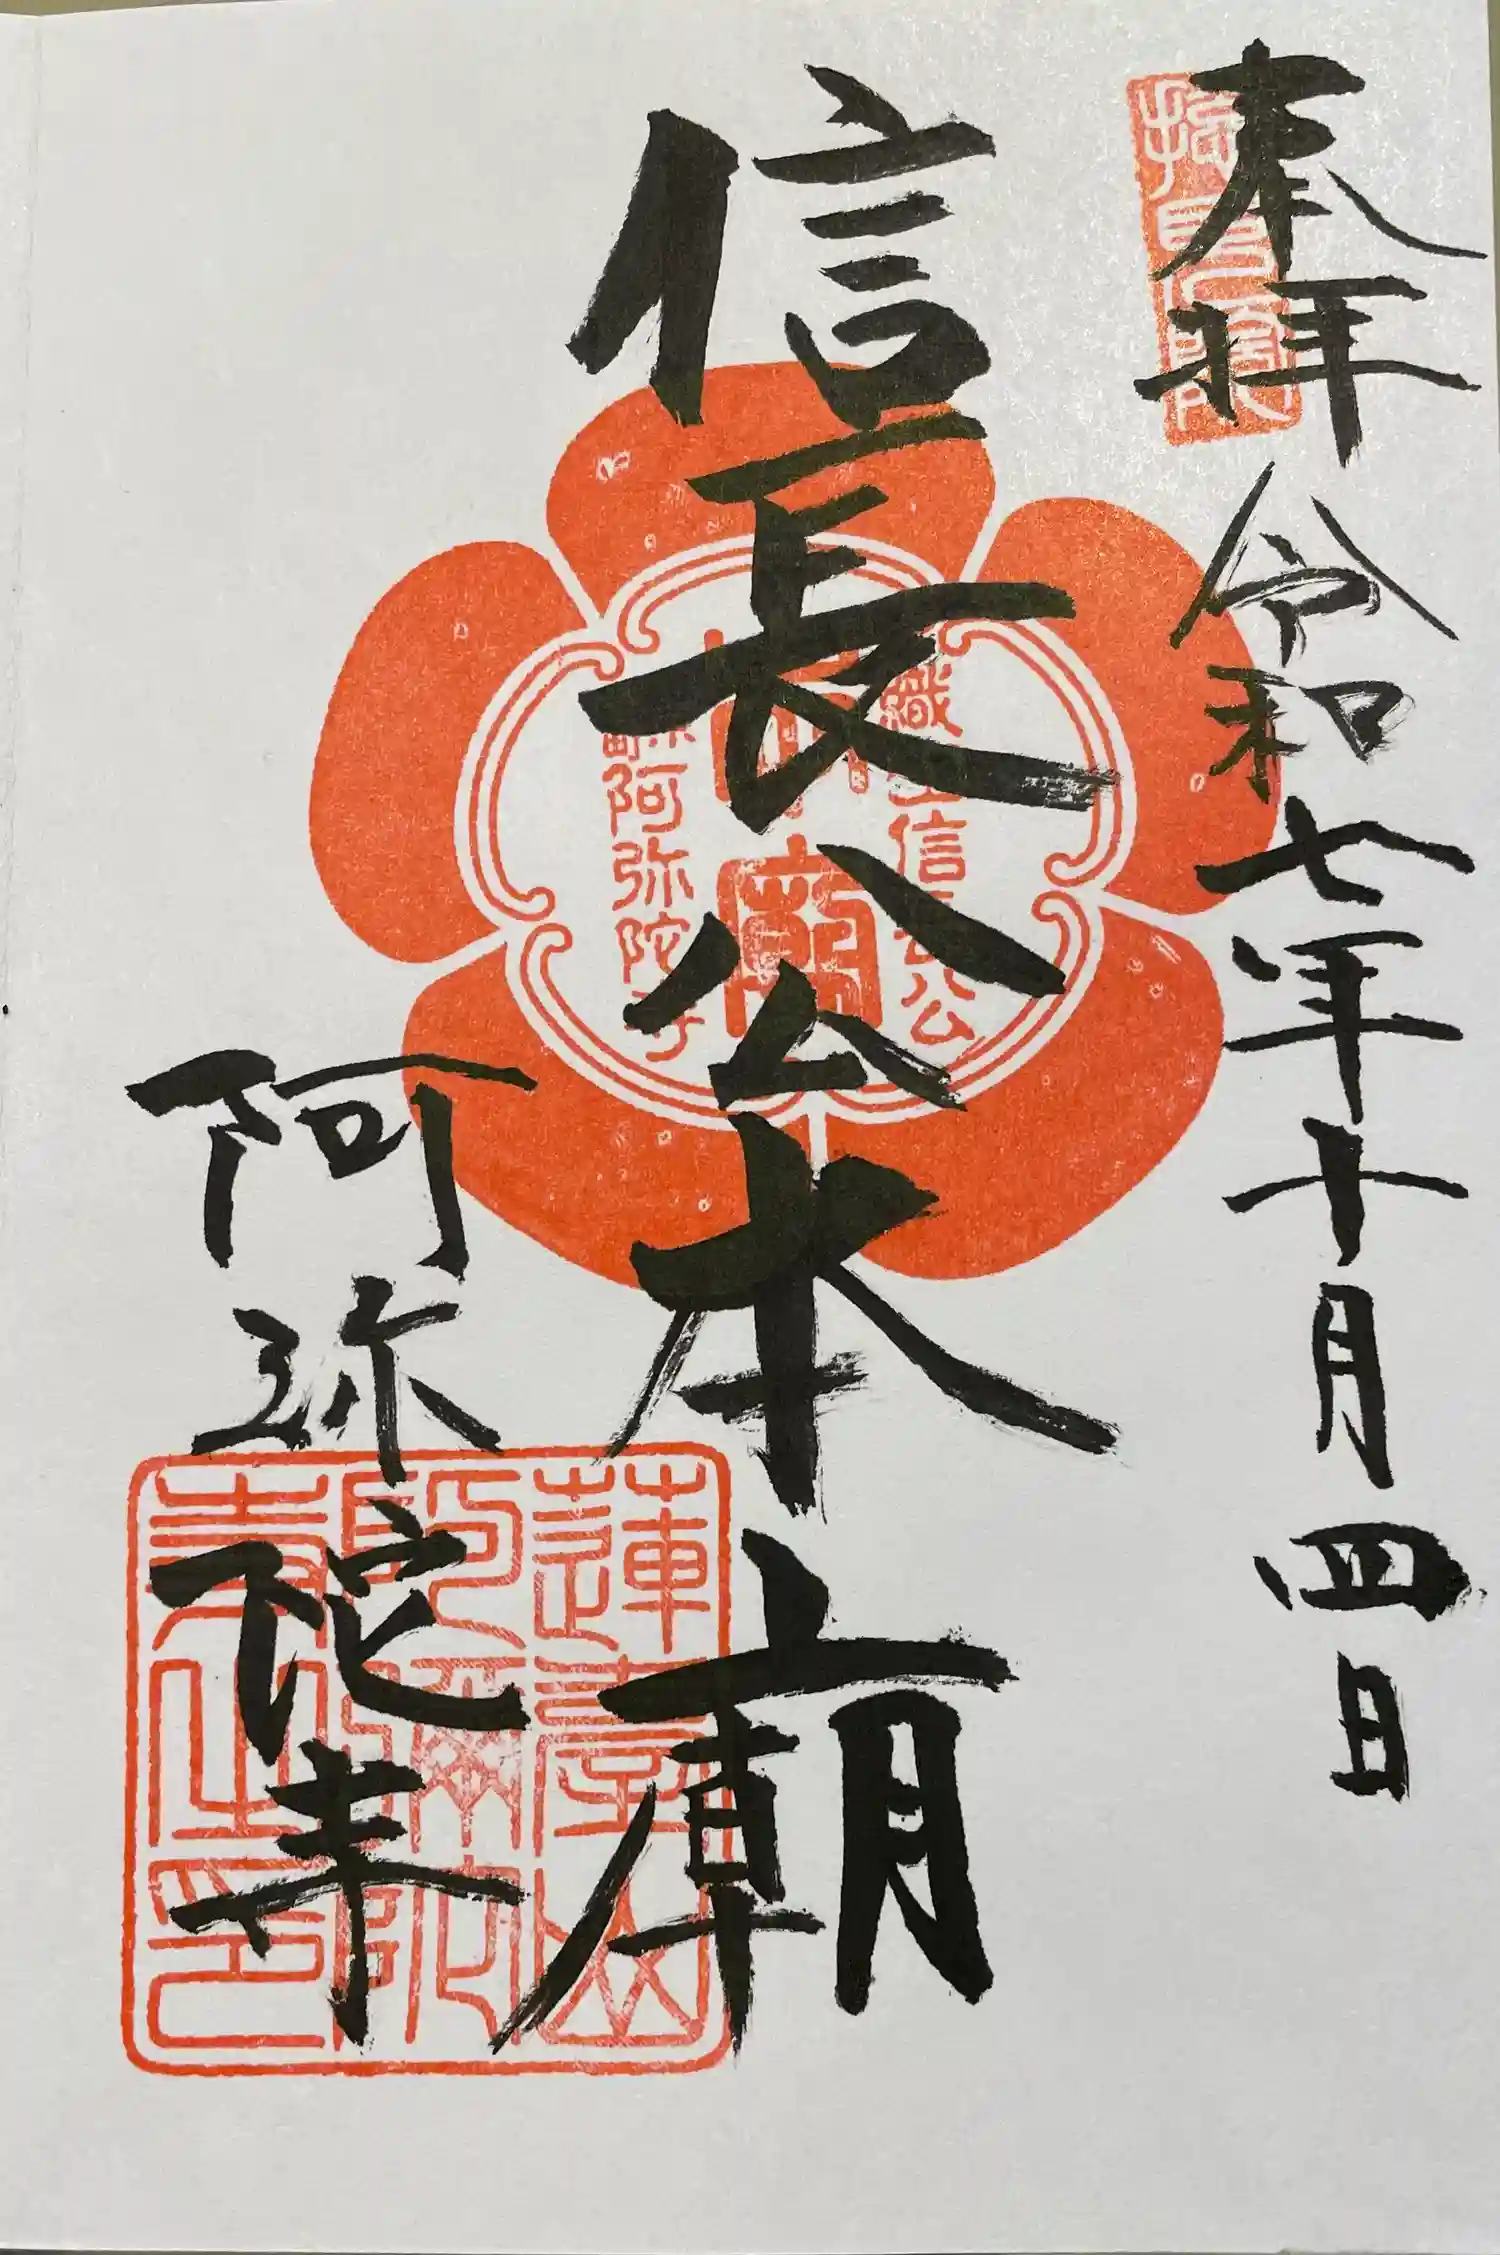 奉拝 令和七年十月四日
信長公本廟
阿弥陀寺
総見院
織田信長公
本廟
阿弥陀寺
蓮臺山
阿彌陀
寺之印